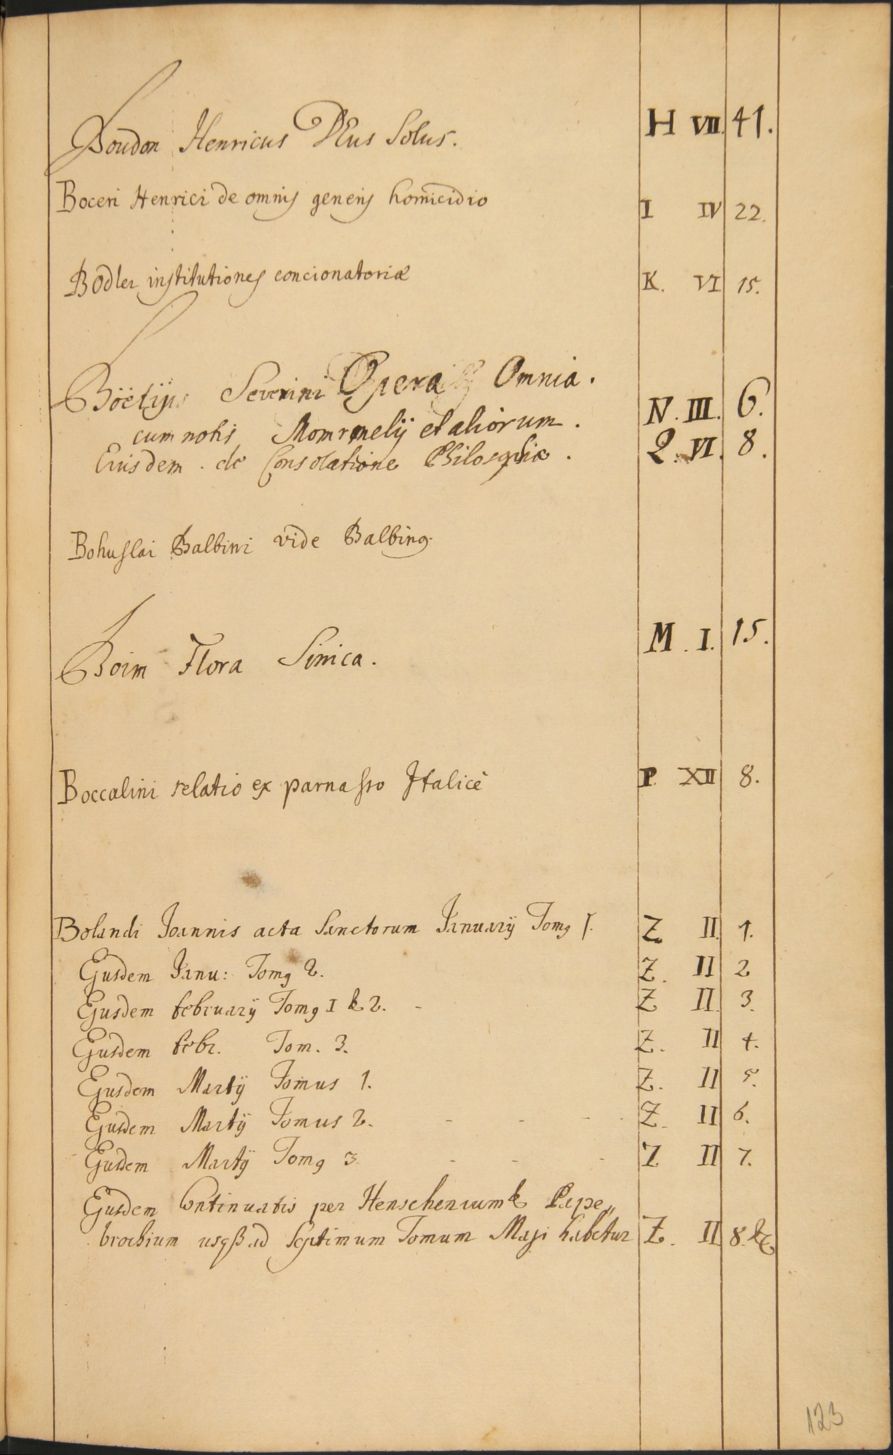 Boudon Henricus DEus Solus. H VII. 41.
Boceri Henrici de omnis generis homicidio I IV 22.
Bodler institutiones concionatoriæ K. VI 15.
Boëtijs Severini Opera Omnia. N. III. 6.
cum notis Mommelij et aliorum. Q. VI. 8.
Eiusdem. de Consolatione Philosophiæ.
Bohuslai Balbini vide Balbinꝰ
Boim Flora Sinica. M. I. 15.
Boccalini relatio ex parnasso Italicè P. XII 8.
Bolandi Joannis acta Sanctorum Januarij Tomꝰ 1. Z II. 1.
Ejusdem Janu: Tomꝰ 2. Z. II 2
Ejusdem februarij Tomꝰ I & 2. - Z II. 3.
Ejusdem febr. Tom. 3. Z. II 4.
Ejusdem Martij Tomus 1. Z. II 5.
Ejusdem Martij Tomus 2. - - - Z. II 6.
Ejusdem Martij Tomꝰ 3. - - - Z II 7.
Ejusdem Continuatis per Henschenium & Pape„
brochium usqꝫ ad Septimum Tomum Maji habetur Z. II 8. &c
123